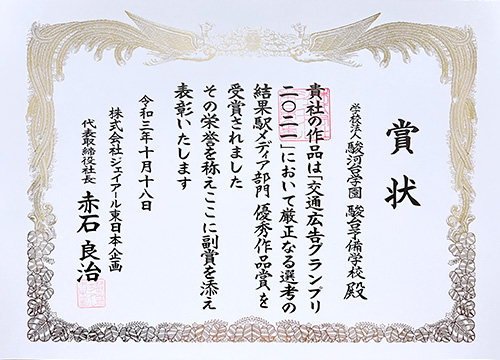 賞状
学校法人 駿河台学園 駿台予備学校 殿
貴社の作品は「交通広告グランプリ
二〇二一」において厳正なる選考の
結果駅メディア部門 優秀作品賞」を
受賞されました
その栄誉を称えここに副賞を添え
表彰いたします
令和三年十月十八日
株式会社ジェイアール東日本企画
代表取締役社長 赤石 良治